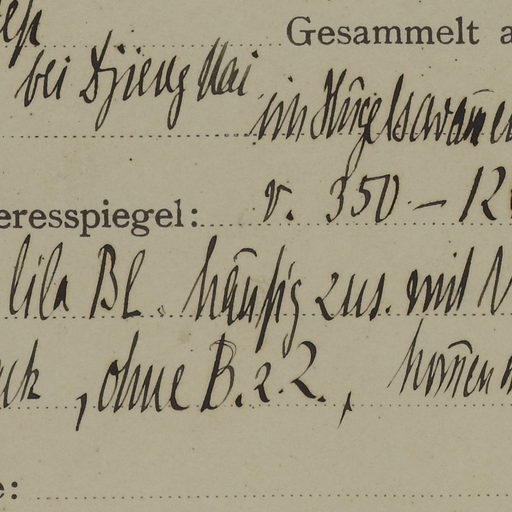 Gesammelt a
bei Djieng Mai
im Hügelsavannen
eresspiegel: v. 350 – 12
lila Bl. häufig zus. mit
, ohne B. z. Z.,
e: